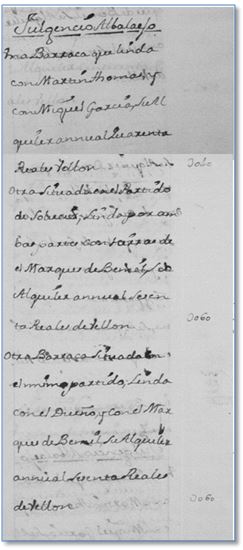 Fulgencio Albaladejo
Una Barraca que linda
con Martin Thomas, y
con Miguel Garcia, su Al
quiler annual quarenta
Reales Vellon 0040
Otra situada en el Partido
de linda por am
bas partes con tierras de
el Marques de Beniel, su
Alquiler annual sesen
ta Reales de Vellon 0060
Otra Barraca situada en
el mismo partido, linda
con el Dueño, y con el Mar
ques de Beniel su Alquiler
annual sesenta Reales
de Vellon 0060